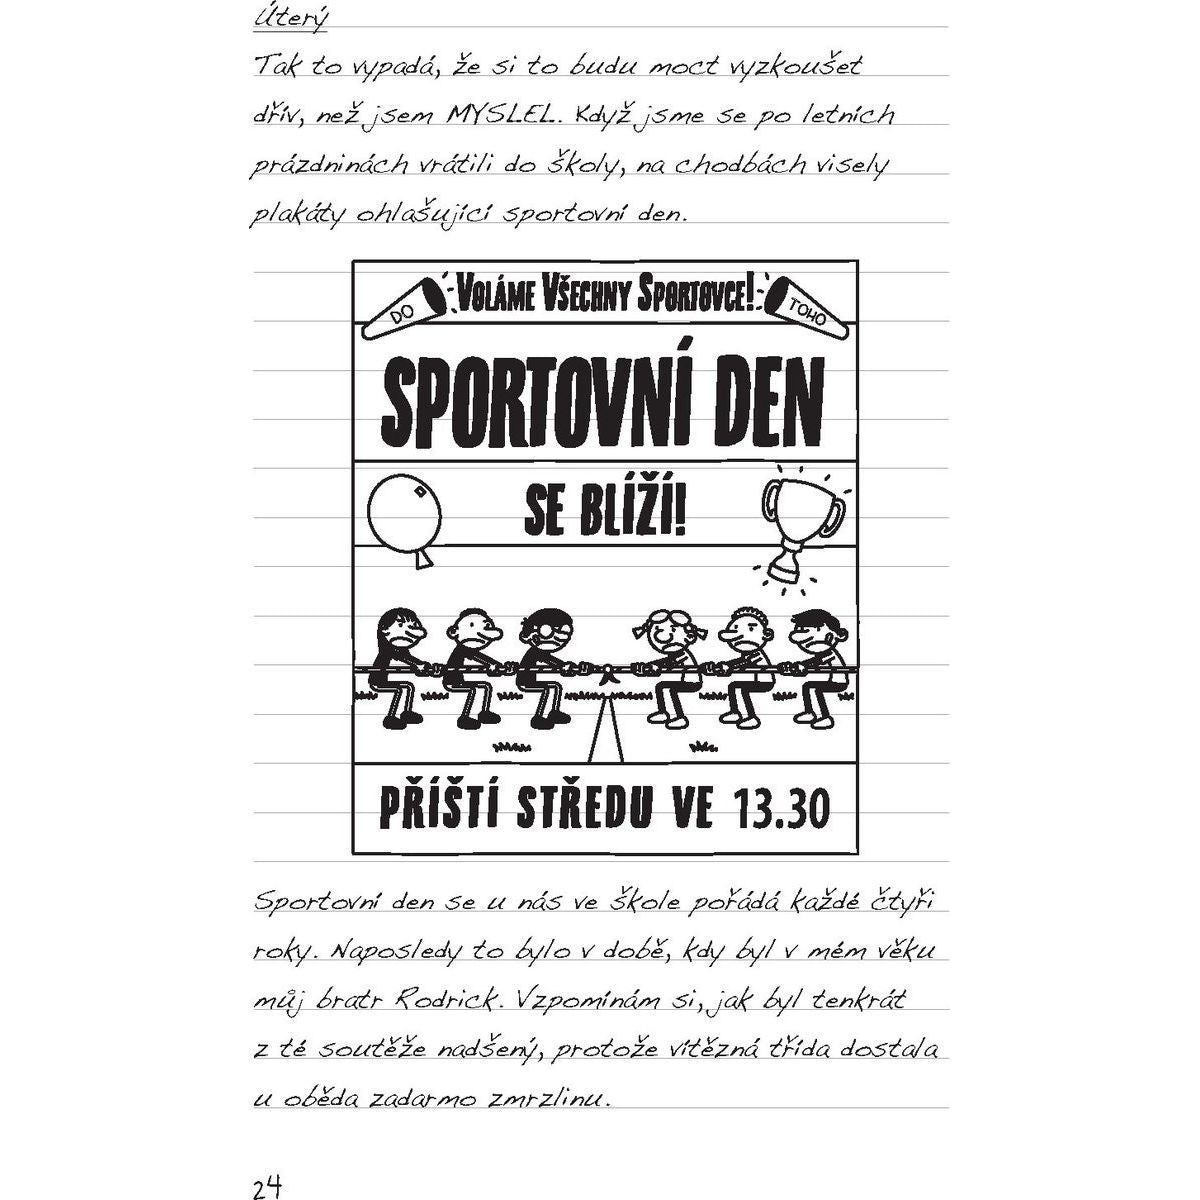 Úterý
Tak to vypadá, že si to budu moct vyzkoušet
dřív, než jsem MYSLEL. Když jsme se po letních
prázdninách vrátili do školy, na chodbách visely
plakáty ohlašující sportovní den.
DO
VOLÁME VŠECHNY SPORTOVCE!
TOHO
SPORTOVNÍ DEN
SE BLÍŽÍ!
PŘÍŠTÍ STŘEDU VE 13.30
Sportovní den se u nás ve škole pořádá každé čtyři
roky. Naposledy to bylo v době, kdy byl v mém věku
můj bratr Rodrick. Vzpomínám si, jak byl tenkrát
z té soutěže nadšený, protože vítězná třída dostala
u oběda zadarmo zmrzlinu.
24